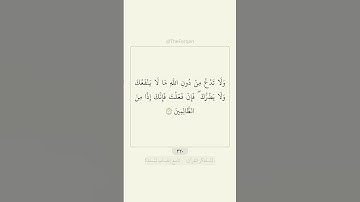 @TheFurqan
وَلَا تَدْعُ مِنْ دُونِ اللَّهِ مَا لَا يَنْفَعُكَ
وَلَا يَضُرُّكَ ۖ فَإِنْ فَعَلْتَ فَإِنَّكَ إِذًا مِنَ
الظَّالِمِينَ
٢٢٠